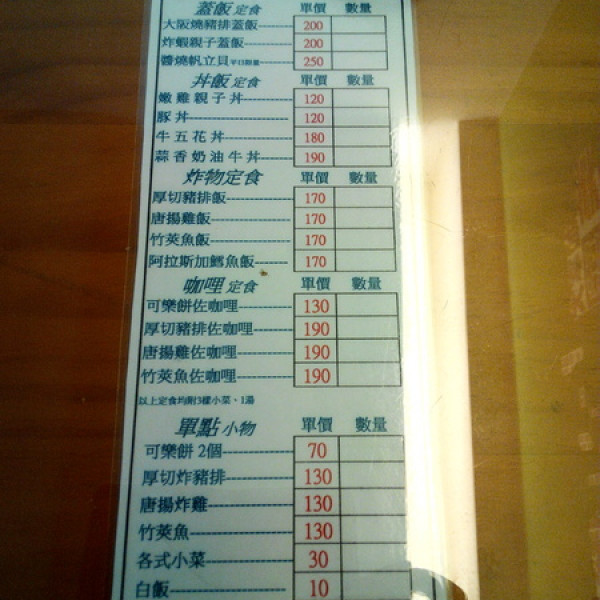 蓋飯定食 單價 數量
大阪燒豬排蓋飯 200
炸蝦親子蓋飯 200
醬燒帆立貝 平日限量 250
丼飯定食 單價 數量
嫩雞親子丼 120
豚丼 120
牛五花丼 180
蒜香奶油牛丼 190
炸物定食 單價 數量
厚切豬排飯 170
唐揚雞飯 170
竹莢魚飯 170
阿拉斯加鱈魚飯 170
咖哩定食 單價 數量
可樂餅佐咖哩 130
厚切豬排佐咖哩 190
唐揚雞佐咖哩 190
竹莢魚佐咖哩 190
以上定食均附3樣小菜、1湯
單點小物 單價 數量
可樂餅 2個 70
厚切炸豬排 130
唐揚炸雞 130
竹莢魚 130
各式小菜 30
白飯 10